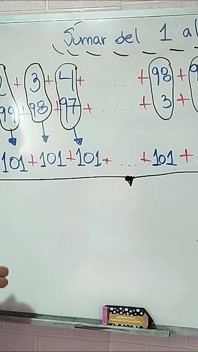 Sumar del 1 al
2 + 3 + 4 + ... + 98 + 9
99 + 98 + 97 + ... + 3 +
101 + 101 + 101 + ... + 101 +